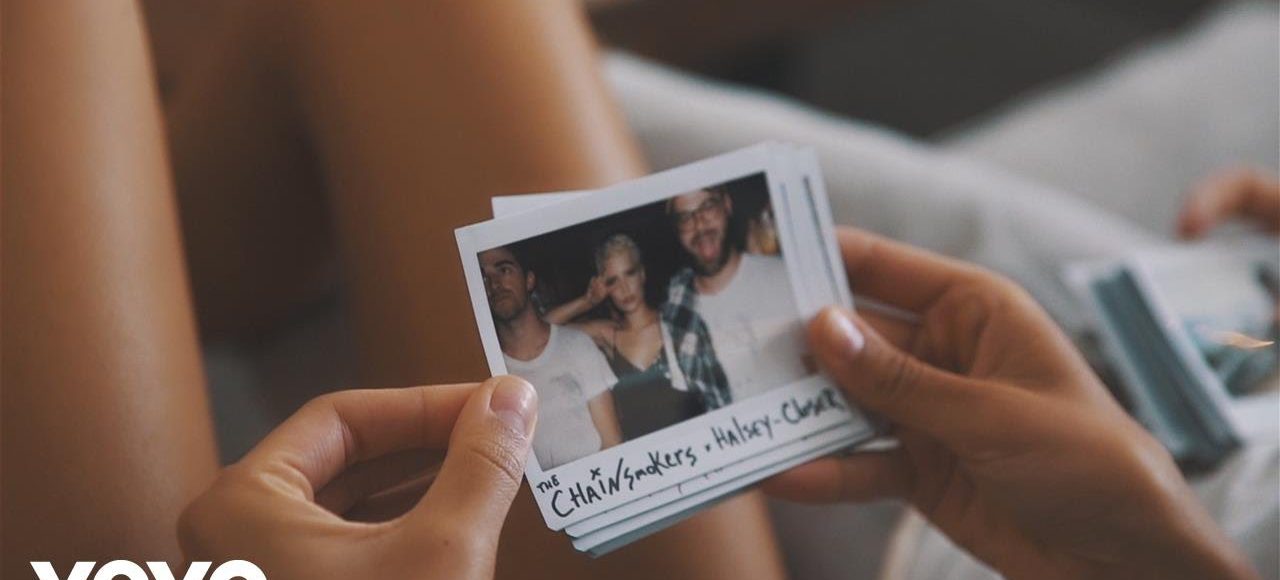 THE CHAINSMOKERS x HALSEY - CLOSER
vevo